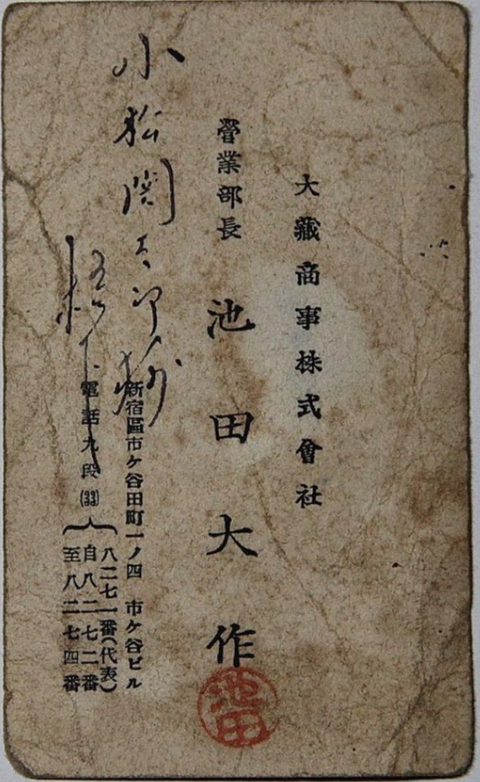 大藏商事株式會社
營業部長 池田大作
池田
新宿區市ケ谷田町一ノ四 市ケ谷ビル
電話九段(33)
八二七一番(代表)
自八二七二番
至八二七四番
小松関太郎様